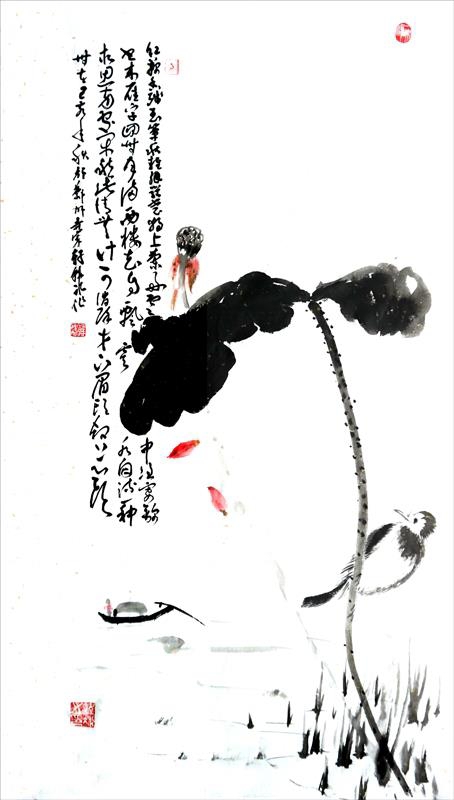 红藕香残玉簟秋轻解罗裳独上兰舟云中谁寄锦
书来雁字回时月满西楼花自飘零水自流一种
相思两处闲愁此情无计可消除才下眉头却上心头
时在己亥年秋